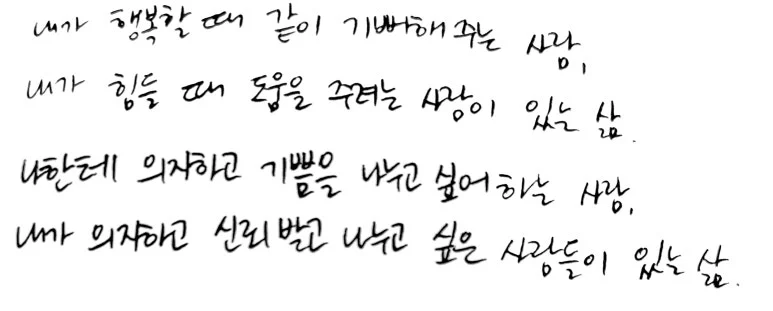 내가 행복할 때 같이 기뻐해 주는 사람,
내가 힘들 때 도움을 주려는 사람이 있는 삶.
나한테 의지하고 기쁨을 나누고 싶어하는 사람,
내가 의지하고 신뢰받고 나누고 싶은 사람들이 있는 삶.